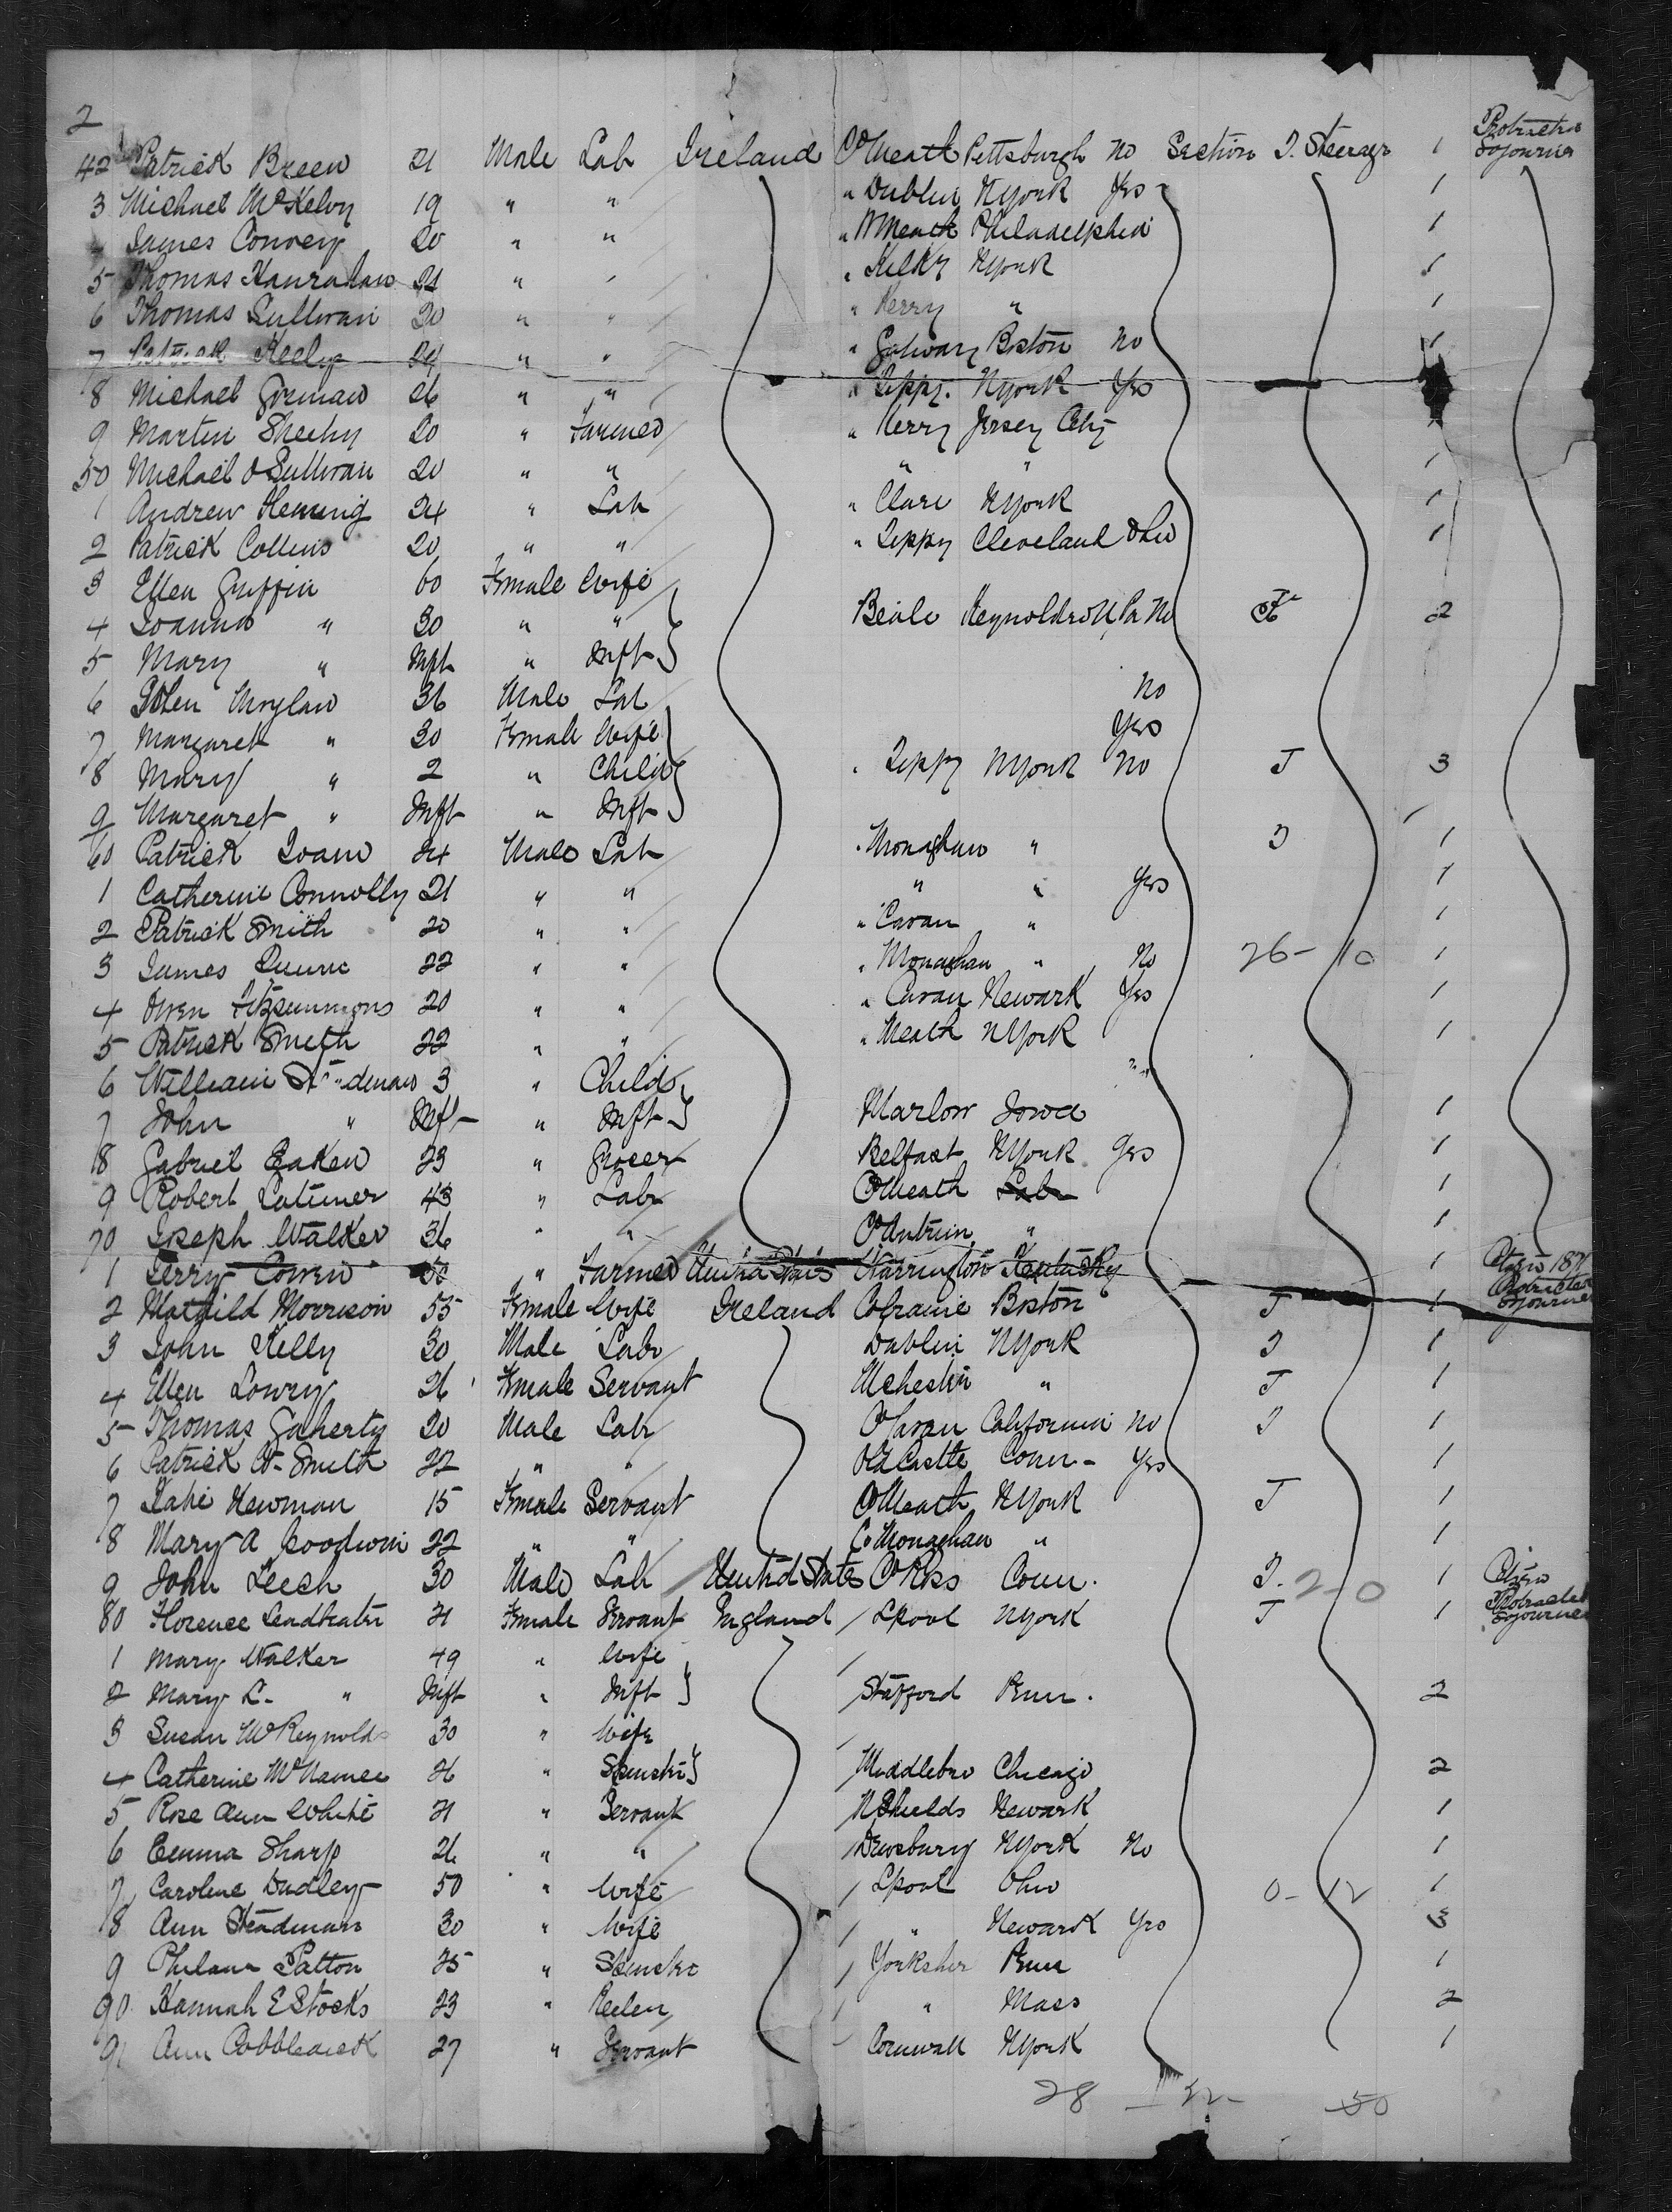 2
42 Patrick Breen 21 Male Lab Ireland Co Meath Pittsburgh No Section I. Steerage 1 Protracted Sojourner
3 Michael McKelvy 19 " " " Dublin NYork Yes 1
4 James Convey 20 " " " WMeath Philadelphia 1
5 Thomas Hanrahan 21 " " " Kilky NYork 1
6 Thomas Sullivan 20 " " " Kerry " 1
7 Patrick Keely 24 " " " Galway Boston No 1
8 Michael Gorman 26 " " " Tippy. NYork Yes
9 Martin Sheehy 20 " Farmer " Kerry Jersey City
50 Michael O Sullivan 20 " " " " 1
1 Andrew Fleming 24 " Lab " Clare NYork 1
2 Patrick Collins 20 " " " Tippy Cleveland Ohio 1
3 Ellen Griffin 60 Female Wife
4 Joanna " 30 " " Beale Reynoldsvill Pa No 2
5 Mary " Inft " Inft
6 John Moylan 36 Male Lab No
7 Margaret " 30 Female Wife Yes
8 Mary " 2 " Child " Tippy NYork No J 3
9 Margaret " Inft " Inft
60 Patrick 24 Male Lab " Monaghan " J 1
1 Catherine Connolly 21 " " " " Yes 1
2 Patrick Smith 20 " " " Cavan " 1
3 James Quinn 22 " " " Monaghan " No 26- 10 1
4 Owen Fitzsimmons 20 " " " Cavan Newark Yes 1
5 Patrick Smith 22 " " " Meath NYork 1
6 William 3 " Child "
7 John " Inft " Inft Marlow Iowa 1
8 Gabriel Eaken 23 " Grocer Belfast NYork Yes 1
9 Robert Latimer 43 " Labr Co Meath Labr 1
70 Joseph Walker 36 " " Co Antrim " 1
1 Terry Cowen " Farmer United States Warrington Kentucky 1 Citizen 187
2 Mathild Morrison 55 Female Wife Ireland Colraine Boston J 1 Protracted Sojourner
3 John Kelly 30 Male Labr Dublin NYork J 1
4 Ellen Lowry 26 Female Servant " J 1
5 Thomas Gaherty 20 Male Labr California No J 1
6 Patrick Smith 22 " " Old Castle Conn- Yes 1
7 Newman 15 Female Servant Co Meath NYork J 1
8 Mary A Goodwin 22 " " Co Monaghan " 1
9 John Leech 30 Male Lab United States Conn. J. 2-0 1 Citizen
80 Florence Leadbeater 21 Female Servant England Lpool NYork J 1 Protracted Sojourner
1 Mary Walker 49 " Wife
2 Mary L- " Inft " Inft Stafford Penn. 2
3 Susan McReynolds 30 " Wife
4 Catherine McNamee 26 " Middlebro Chicago 2
5 Rose Ann White 21 " Servant NShields Newark 1
6 Emma Sharp 26 " " Dewsbury NYork No 1
7 Caroline Dudley 50 " Wife Lpool Ohio 0- 12 1
8 Ann Steadman 30 " Wife " Newark Yes 3
9 Patton 25 " Yorksher Penn 1
90 Hannah E Stocks 23 " " Mass 2
91 Ann Cobbledick 27 " Servant Cornwall NYork 1
28 22- 50